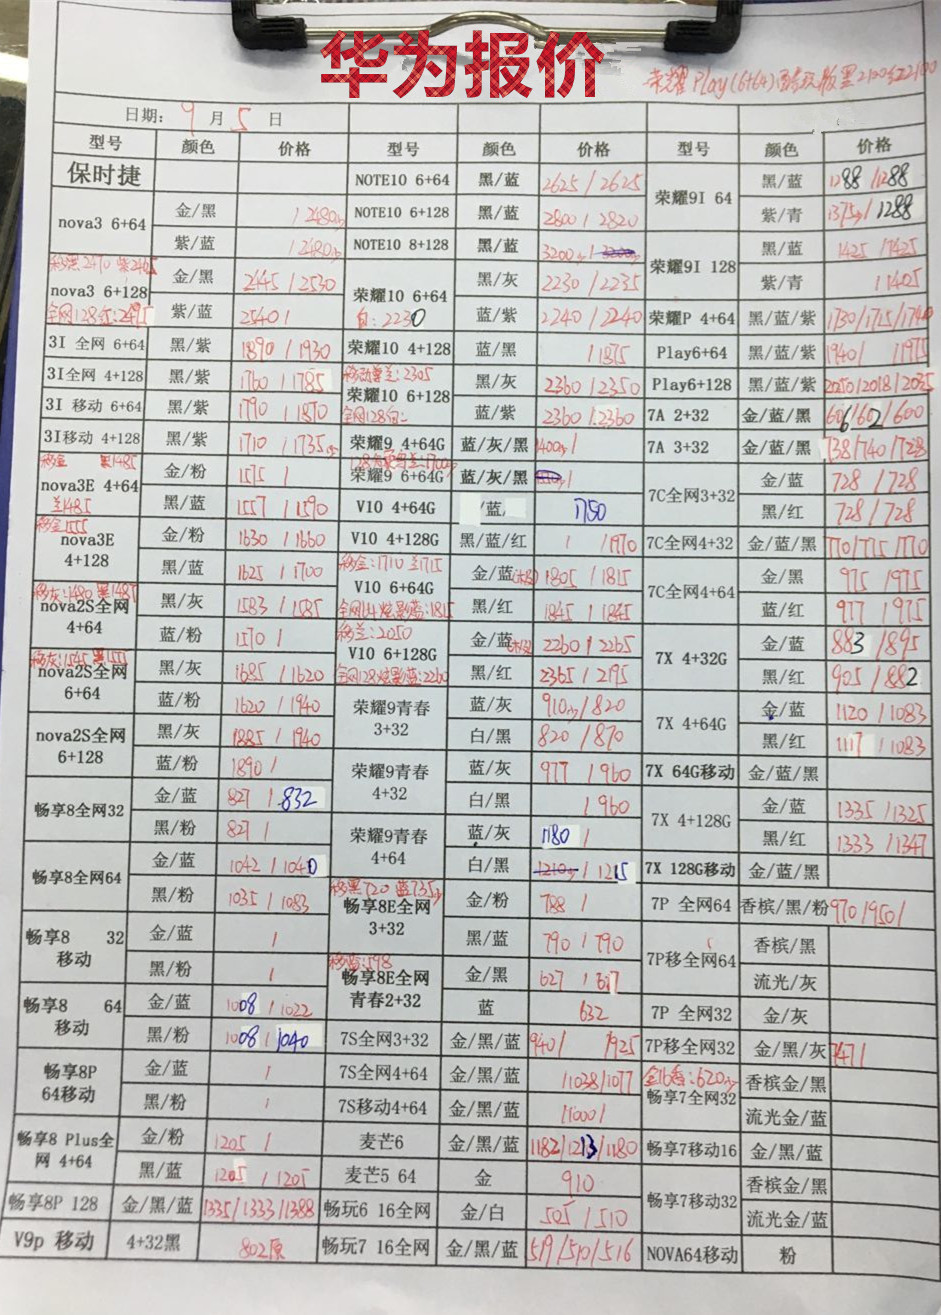 华为报价
荣耀Play(6+64)酷玩版黑2120红2100
日期: 9 月 5 日
型号 颜色 价格 型号 颜色 价格 型号 颜色 价格
保时捷 NOTE10 6+64 黑/蓝 2625/2625 荣耀9I 64 黑/蓝 1288/1288
nova3 6+64 金/黑 /2480 NOTE10 6+128 黑/蓝 2800/2820 紫/青 1375/1288
紫/蓝 /2480 NOTE10 8+128 黑/蓝 3200/ 荣耀9I 128 黑/蓝 1425/1425
移黑2470 紫2465
nova3 6+128 金/黑 2445/2530 荣耀10 6+64 黑/灰 2230/2235 紫/青 /1405
全网128红:2495 紫/蓝 2540/ 白:2230 蓝/紫 2240/2240 荣耀P 4+64 黑/蓝/紫 1730/1715/1740
3I 全网 6+64 黑/紫 1890/1930 荣耀10 4+128 蓝/黑 /1875 Play6+64 黑/蓝/紫 1940/ /1975
3I全网 4+128 黑/紫 1760/1785 荣耀10 6+128 黑/灰 2360/2350 Play6+128 黑/蓝/紫 2050/2018/2035
3I 移动 6+64 黑/紫 1790/1870 全网128白: 蓝/紫 2360/2360 7A 2+32 金/蓝/黑 606/602/600
3I移动 4+128 黑/紫 1710/1735 荣耀9 4+64G 蓝/灰/黑 1400/ 7A 3+32 金/蓝/黑 738/740/728
移金 黑1485
nova3E 4+64 金/粉 1575/ 荣耀9 6+64G 蓝/灰/黑 7C全网3+32 金/蓝 728/728
兰1485 黑/蓝 1557/1590 V10 4+64G /蓝/ 1750 黑/红 728/728
移金1555
nova3E 4+128 金/粉 1630/1660 V10 4+128G 黑/蓝/红 / /1970 7C全网4+32 金/蓝/黑 770/775/770
黑/蓝 1625/1700 移金:1710 兰1715 V10 6+64G 金/蓝 1805/1815 7C全网4+64 金/黑 975/975
移灰:1480 黑1485
nova2S全网 4+64 黑/灰 1583/1585 全网64炫影蓝:1815 黑/红 1845/1845 蓝/红 977/975
蓝/粉 1570/ 移兰:2050 V10 6+128G 金/蓝 2260/2265 7X 4+32G 金/蓝 883/895
移灰:1545 黑1551
nova2S全网 6+64 黑/灰 1685/1620 全网128炫影蓝:2260 黑/红 2365/2195 黑/红 905/882
蓝/粉 1620/1940 荣耀9青春 3+32 蓝/灰 910/820 7X 4+64G 金/蓝 1120/1083
nova2S全网 6+128 黑/灰 1885/1940 白/黑 820/870 黑/红 1117/1083
蓝/粉 1890/ 荣耀9青春 4+32 蓝/灰 977/960 7X 64G移动 金/蓝/黑
畅享8全网32 金/蓝 827/832 白/黑 /960 7X 4+128G 金/蓝 1335/1325
黑/粉 827/ 荣耀9青春 4+64 蓝/灰 1180/ 黑/红 1333/1347
畅享8全网64 金/蓝 1042/1040 白/黑 1210/1215 7X 128G移动 金/蓝/黑
黑/粉 1035/1083 移黑720 蓝735 畅享8E全网 3+32 金/粉 788/ 7P 全网64 香槟/黑/粉 970/950/
畅享8 32 移动 金/蓝 / 黑/蓝 790/790 7P移全网64 香槟/黑
黑/粉 / 移蓝:598 畅享8E全网 青春2+32 金/黑 627/627 流光/灰
畅享8 64 移动 金/蓝 1008/1022 蓝 632 7P 全网32 金/灰
黑/粉 1008/1040 7S全网3+32 金/黑/蓝 940/ /925 7P移全网32 金/黑/灰 747/
畅享8P 64移动 金/蓝 / 7S全网4+64 金/黑/蓝 /1038/1077 金16香:620 畅享7全网32 香槟金/黑
黑/粉 / 7S移动4+64 金/黑/蓝 /1000/ 流光金/蓝
畅享8 Plus全网 4+64 金/粉 1205/ 麦芒6 金/黑/蓝 1182/1213/1180 畅享7移动16 金/黑/蓝
黑/蓝 1205/1205 麦芒5 64 金 910 畅享7移动32 香槟金/黑
畅享8P 128 金/黑/蓝 1335/1333/1388 畅玩6 16全网 金/白 505/510 流光金/蓝
V9p 移动 4+32黑 802原 畅玩7 16全网 金/黑/蓝 519/510/516 NOVA64移动 粉